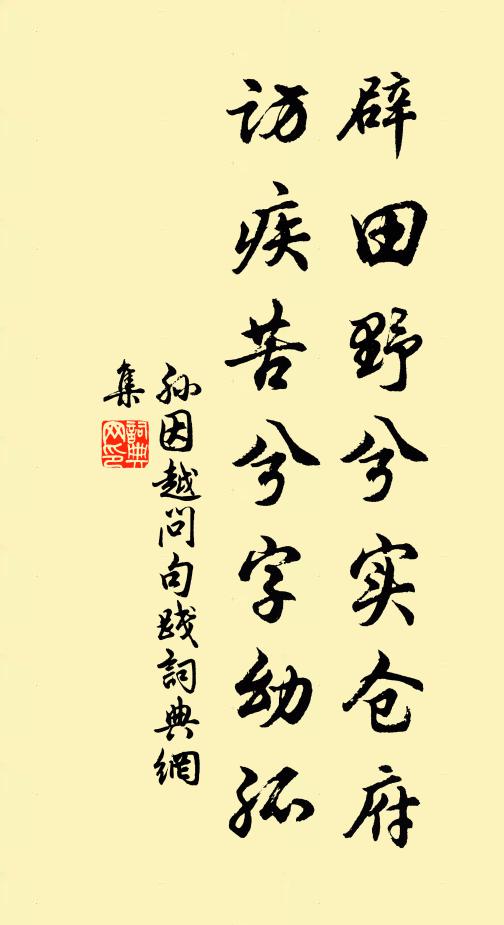 辟田野兮实仓府
访疾苦兮字幼孤
孙因越问句践詞典網
集
詞典网印